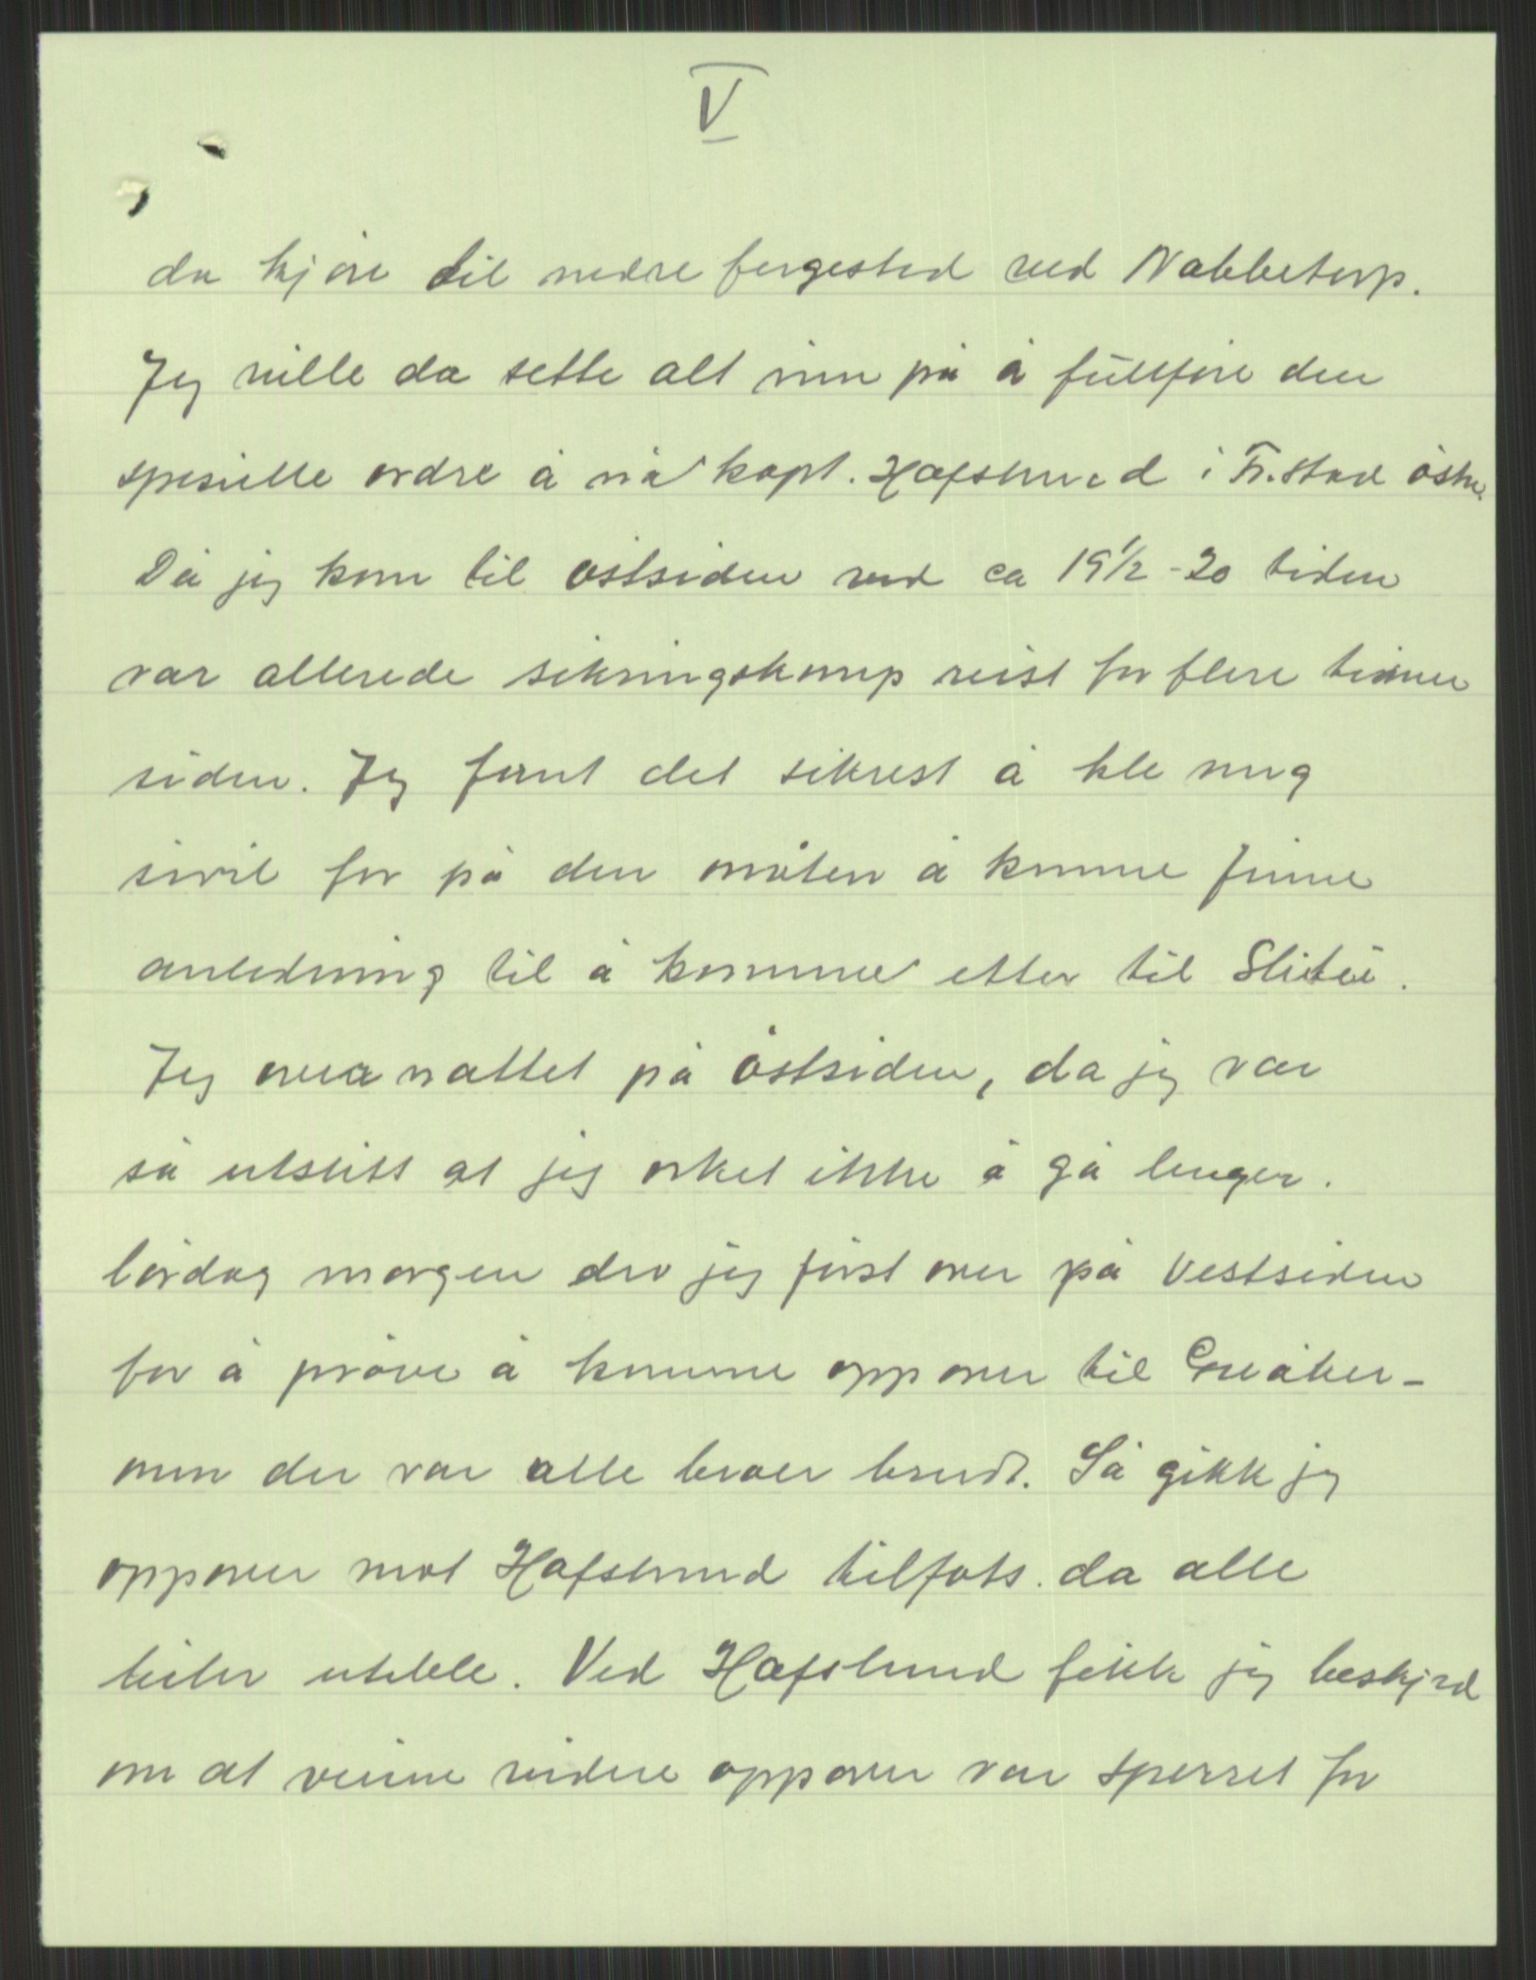 V
da kjøre til nedre fergested ved Nabbetorp.
Jeg ville da sette alt inn på å fullføre den
spesielle ordre å nå kapt. Hafslund i Fr.stad østre.
Da jeg kom til østsiden ved ca 19½-20 tiden
var allerede sikringskomp reist for flere timer
siden. Jeg fant det sikrest å kle mig
sivil for på den måten å kunne finne
anledning til å komme etter til Slitu.
Jeg overnattet på østsiden, da jeg var
så utslitt at jeg orket ikke å gå lenger.
Lørdag morgen dro jeg først over på Vestsiden
for å prøve å komme oppover til Greåker-
men der var alle broer brudt. Så gikk jeg
oppover mot Hafslund tilfots. da alle
biler uteble. Ved Hafslund fikk jeg beskjed
om at veiene videre oppover var sperret for